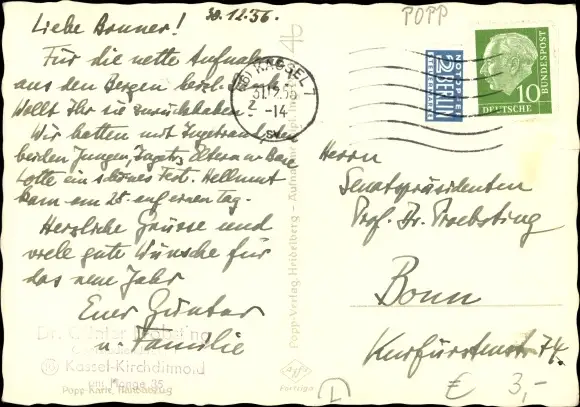 30.12.56.
POPP
4b
Liebe Bonner!
Für die nette Aufnahme
aus den Bergen herzl. Dank.
Wollt Ihr sie zurückhaben?
Wir hatten mit
beiden Jungen, Eltern u.
Lotte ein schönes Fest. Hellmut
kam am 25. auf einen Tag.
Herzliche Grüsse und
viele gute Wünsche für
das neue Jahr
Euer Günter
u. Familie
Dr. Günter
Kassel-Kirchditmold
35
Popp-Karte, Handabzug
Popp-Verlag, Heidelberg - Aufnahme
(16) KASSEL 7
31.12.56
-14
NOTOPFER
2 BERLIN
STEUERMARKE
DEUTSCHE
BUNDESPOST
10
Herrn
Senatspräsidenten
Prof. Dr. Proebsting
Bonn
Kurfürstenstr. 74.
Agfa
€ 3,-